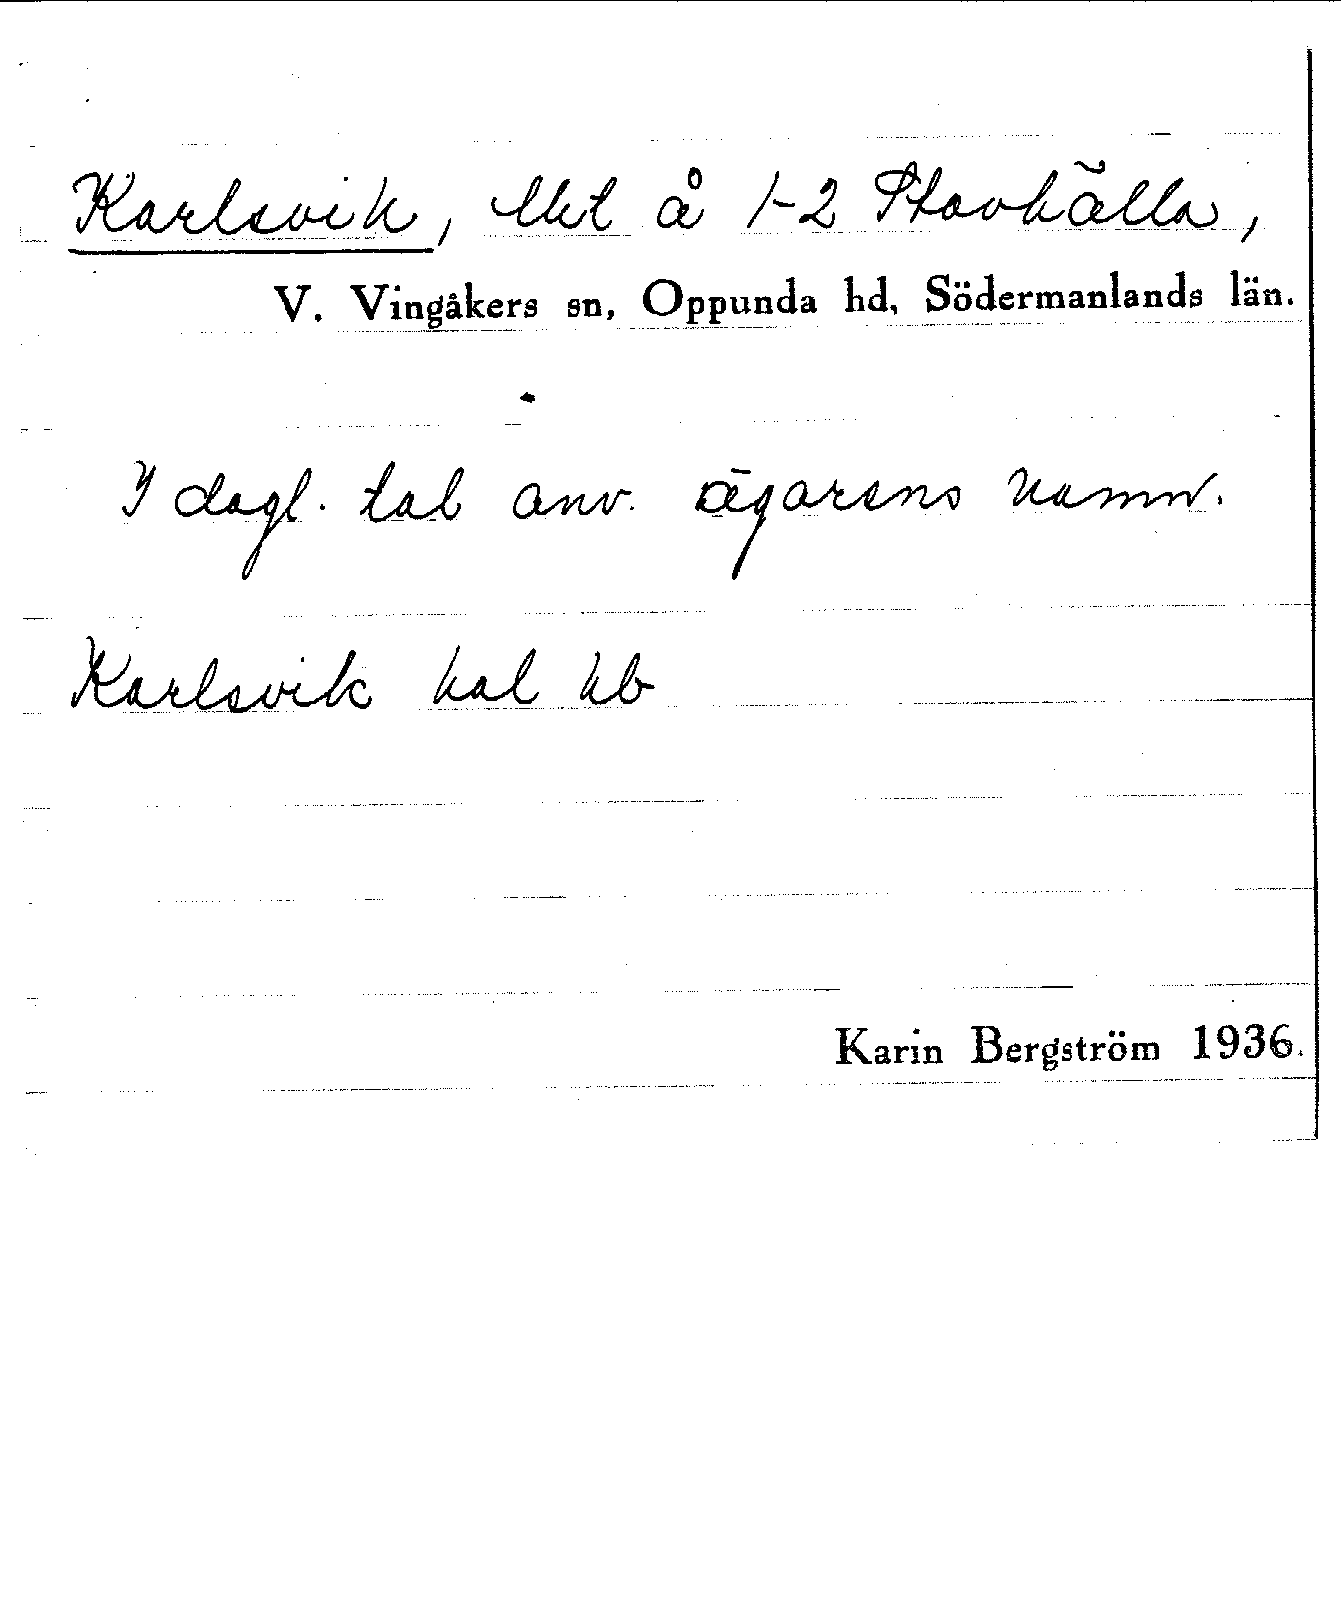 Karlsvik, lht å 1-2 Stavhälla,
V. Vingåkers sn, Oppunda hd, Södermanlands län.
I dagl. tal anv. ägarens namn.
Karlsvik hal hb
Karin Bergström 1936.